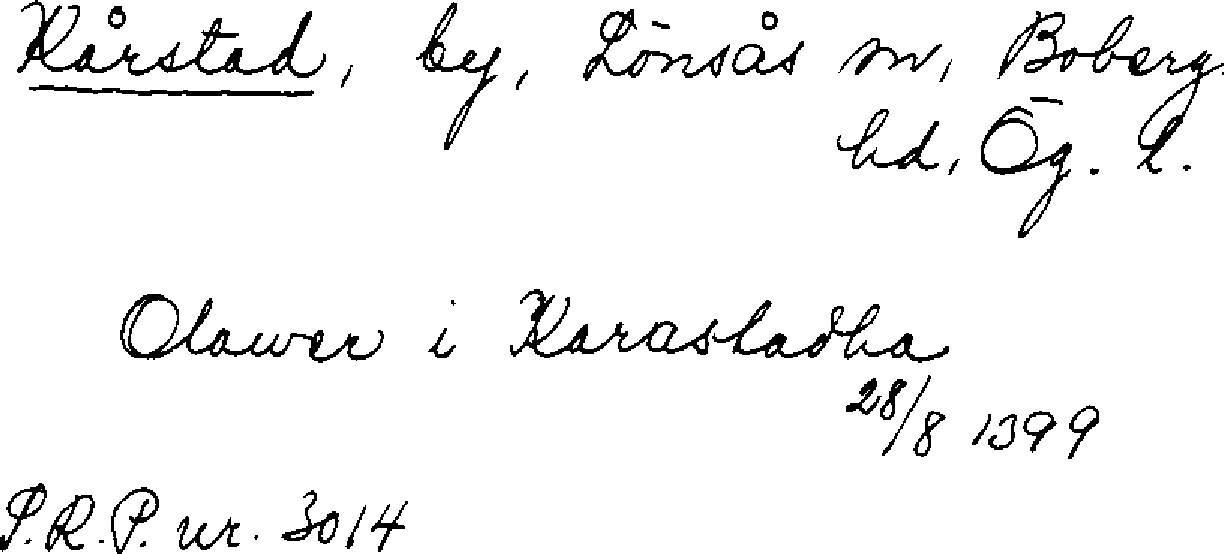 Kårstad, by, Lönsås sn, Boberg
hd, Ög. l.
Olawer i Karastadha
28/8 1399
S.R.P. nr. 3014